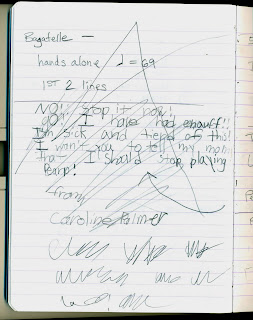 Bagatelle —
hands alone ♩ = 69
1st 2 lines
NO!! Stop it now!
I have had enauff!
I'm sick and tierd of this!
I want you to tell my mom
that I should stop playing
from
Caroline Palmer